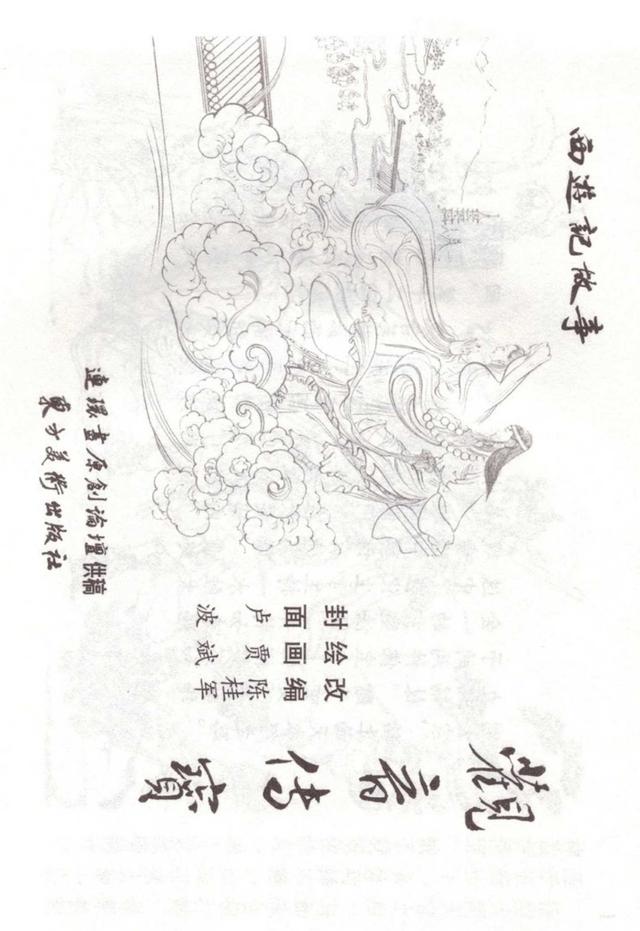 西遊記故事
觀音传寶
改编 陈桂军
绘画 贾斌
封面 卢波
連環畫原創論壇供稿
東方美術出版社